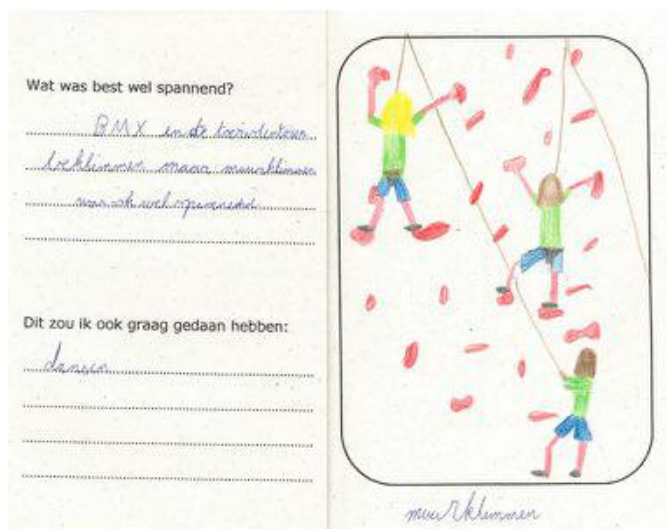 Wat was best wel spannend?
BMX en de
beklimmen maar muurklimmen
was ook wel spannend
Dit zou ik ook graag gedaan hebben:
dansen
muurklimmen